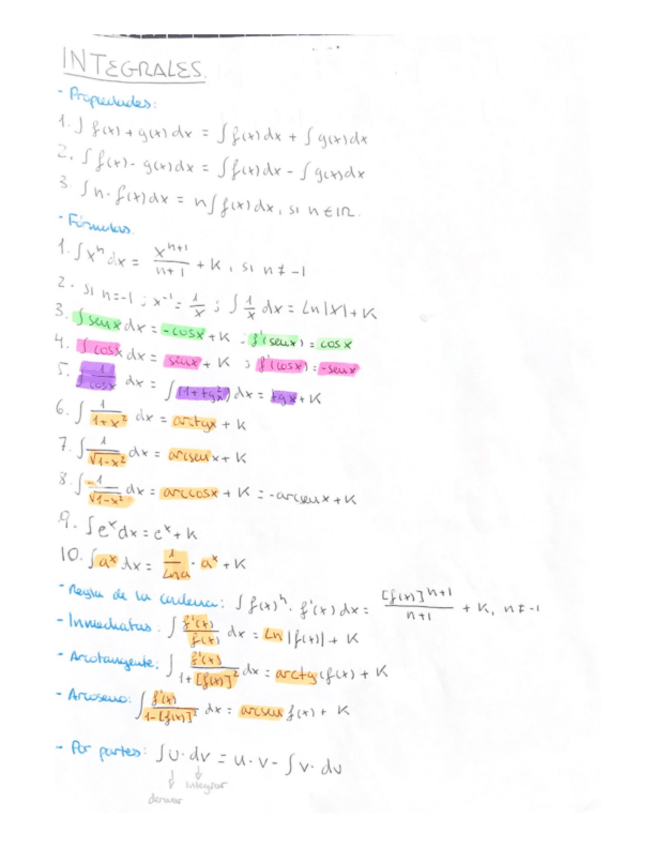 INTEGRALES.
- Propiedades:
1. ∫ f(x) + g(x) dx = ∫ f(x) dx + ∫ g(x) dx
2. ∫ f(x) - g(x) dx = ∫ f(x) dx - ∫ g(x) dx
3. ∫ n · f(x) dx = n ∫ f(x) dx, si n ∈ ℝ.
- Fórmulas.
1. ∫ xⁿ dx = xⁿ⁺¹/(n+1) + K, si n ≠ -1
2. si n=-1 ; x⁻¹ = 1/x ; ∫ 1/x dx = Ln|x| + K
3. ∫ senx dx = -cosx + K ; f'(senx) = cosx
4. ∫ cosx dx = senx + K ; f'(cosx) = -senx
5. ∫ 1/cosx dx = ∫ (1+tg²x) dx = tgx + K
6. ∫ 1/(1+x²) dx = arctgx + K
7. ∫ 1/√(1-x²) dx = arcsenx + K
8. ∫ -1/√(1-x²) dx = arccosx + K = -arcsenx + K
9. ∫ eˣ dx = eˣ + K
10. ∫ aˣ dx = 1/Lna · aˣ + K
- Regla de la cadena: ∫ f(x)ⁿ · f'(x) dx = [f(x)]ⁿ⁺¹/(n+1) + K, n ≠ -1
- Inmediatas: ∫ f'(x)/f(x) dx = Ln |f(x)| + K
- Arcotangente: ∫ f'(x)/(1+[f(x)]²) dx = arctg(f(x) + K
- Arcoseno: ∫ f'(x)/(1-[f(x)]²) dx = arcsen f(x) + K
- Por partes: ∫ u · dv = u · v - ∫ v · du
↓ ↓
integrar
derivar